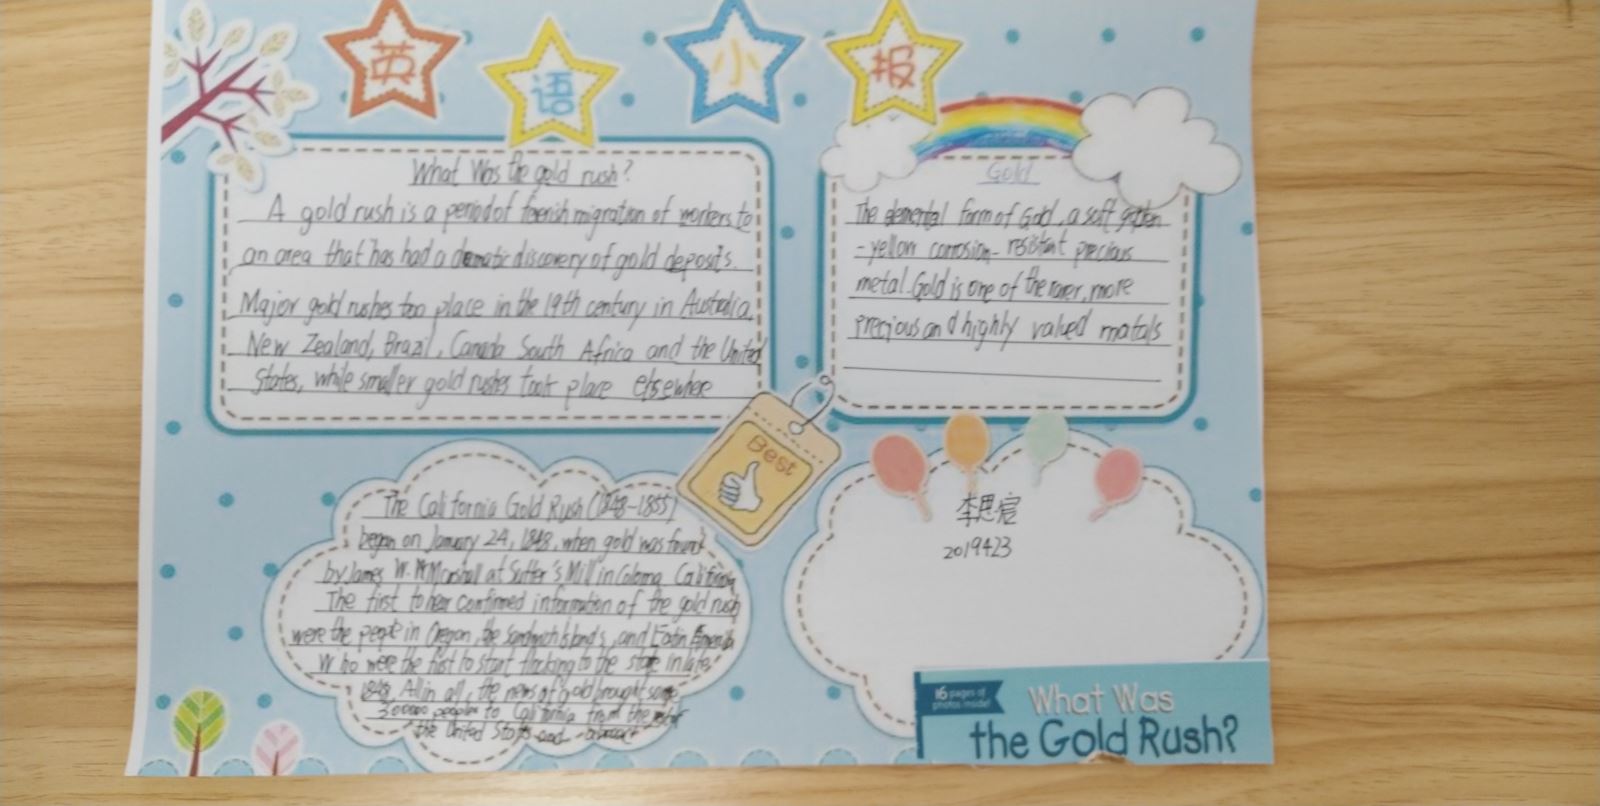 英语小报
What Was the gold rush?
A gold rush is a period of feverish migration of workers to
an area that has had a dramatic discovery of gold deposits.
Major gold rushes too place in the 19th century in Australia,
New Zealand, Brazil, Canada South Africa and the United
States, while smaller gold rushes took place elsewhere
Gold
The elemental form of Gold, a soft
-yellow corrosion-resistant precious
metal. Gold is one of the rarer, more
precious and highly valued matals
Best
The California Gold Rush (1848-1855)
began on January 24, 1848, when gold was found
by James W. Marshall at Sutter's Mill in Coloma California
The first to hear confirmed information of the gold rush
were the people in Oregon, the Sandwich Islands, and
Who were the fist to start flocking to the state in late
1848. All in all, the news of gold brought some
300000 people to California from the
the United States and
李思宸
2019423
16 pages of
photos inside!
What Was
the Gold Rush?